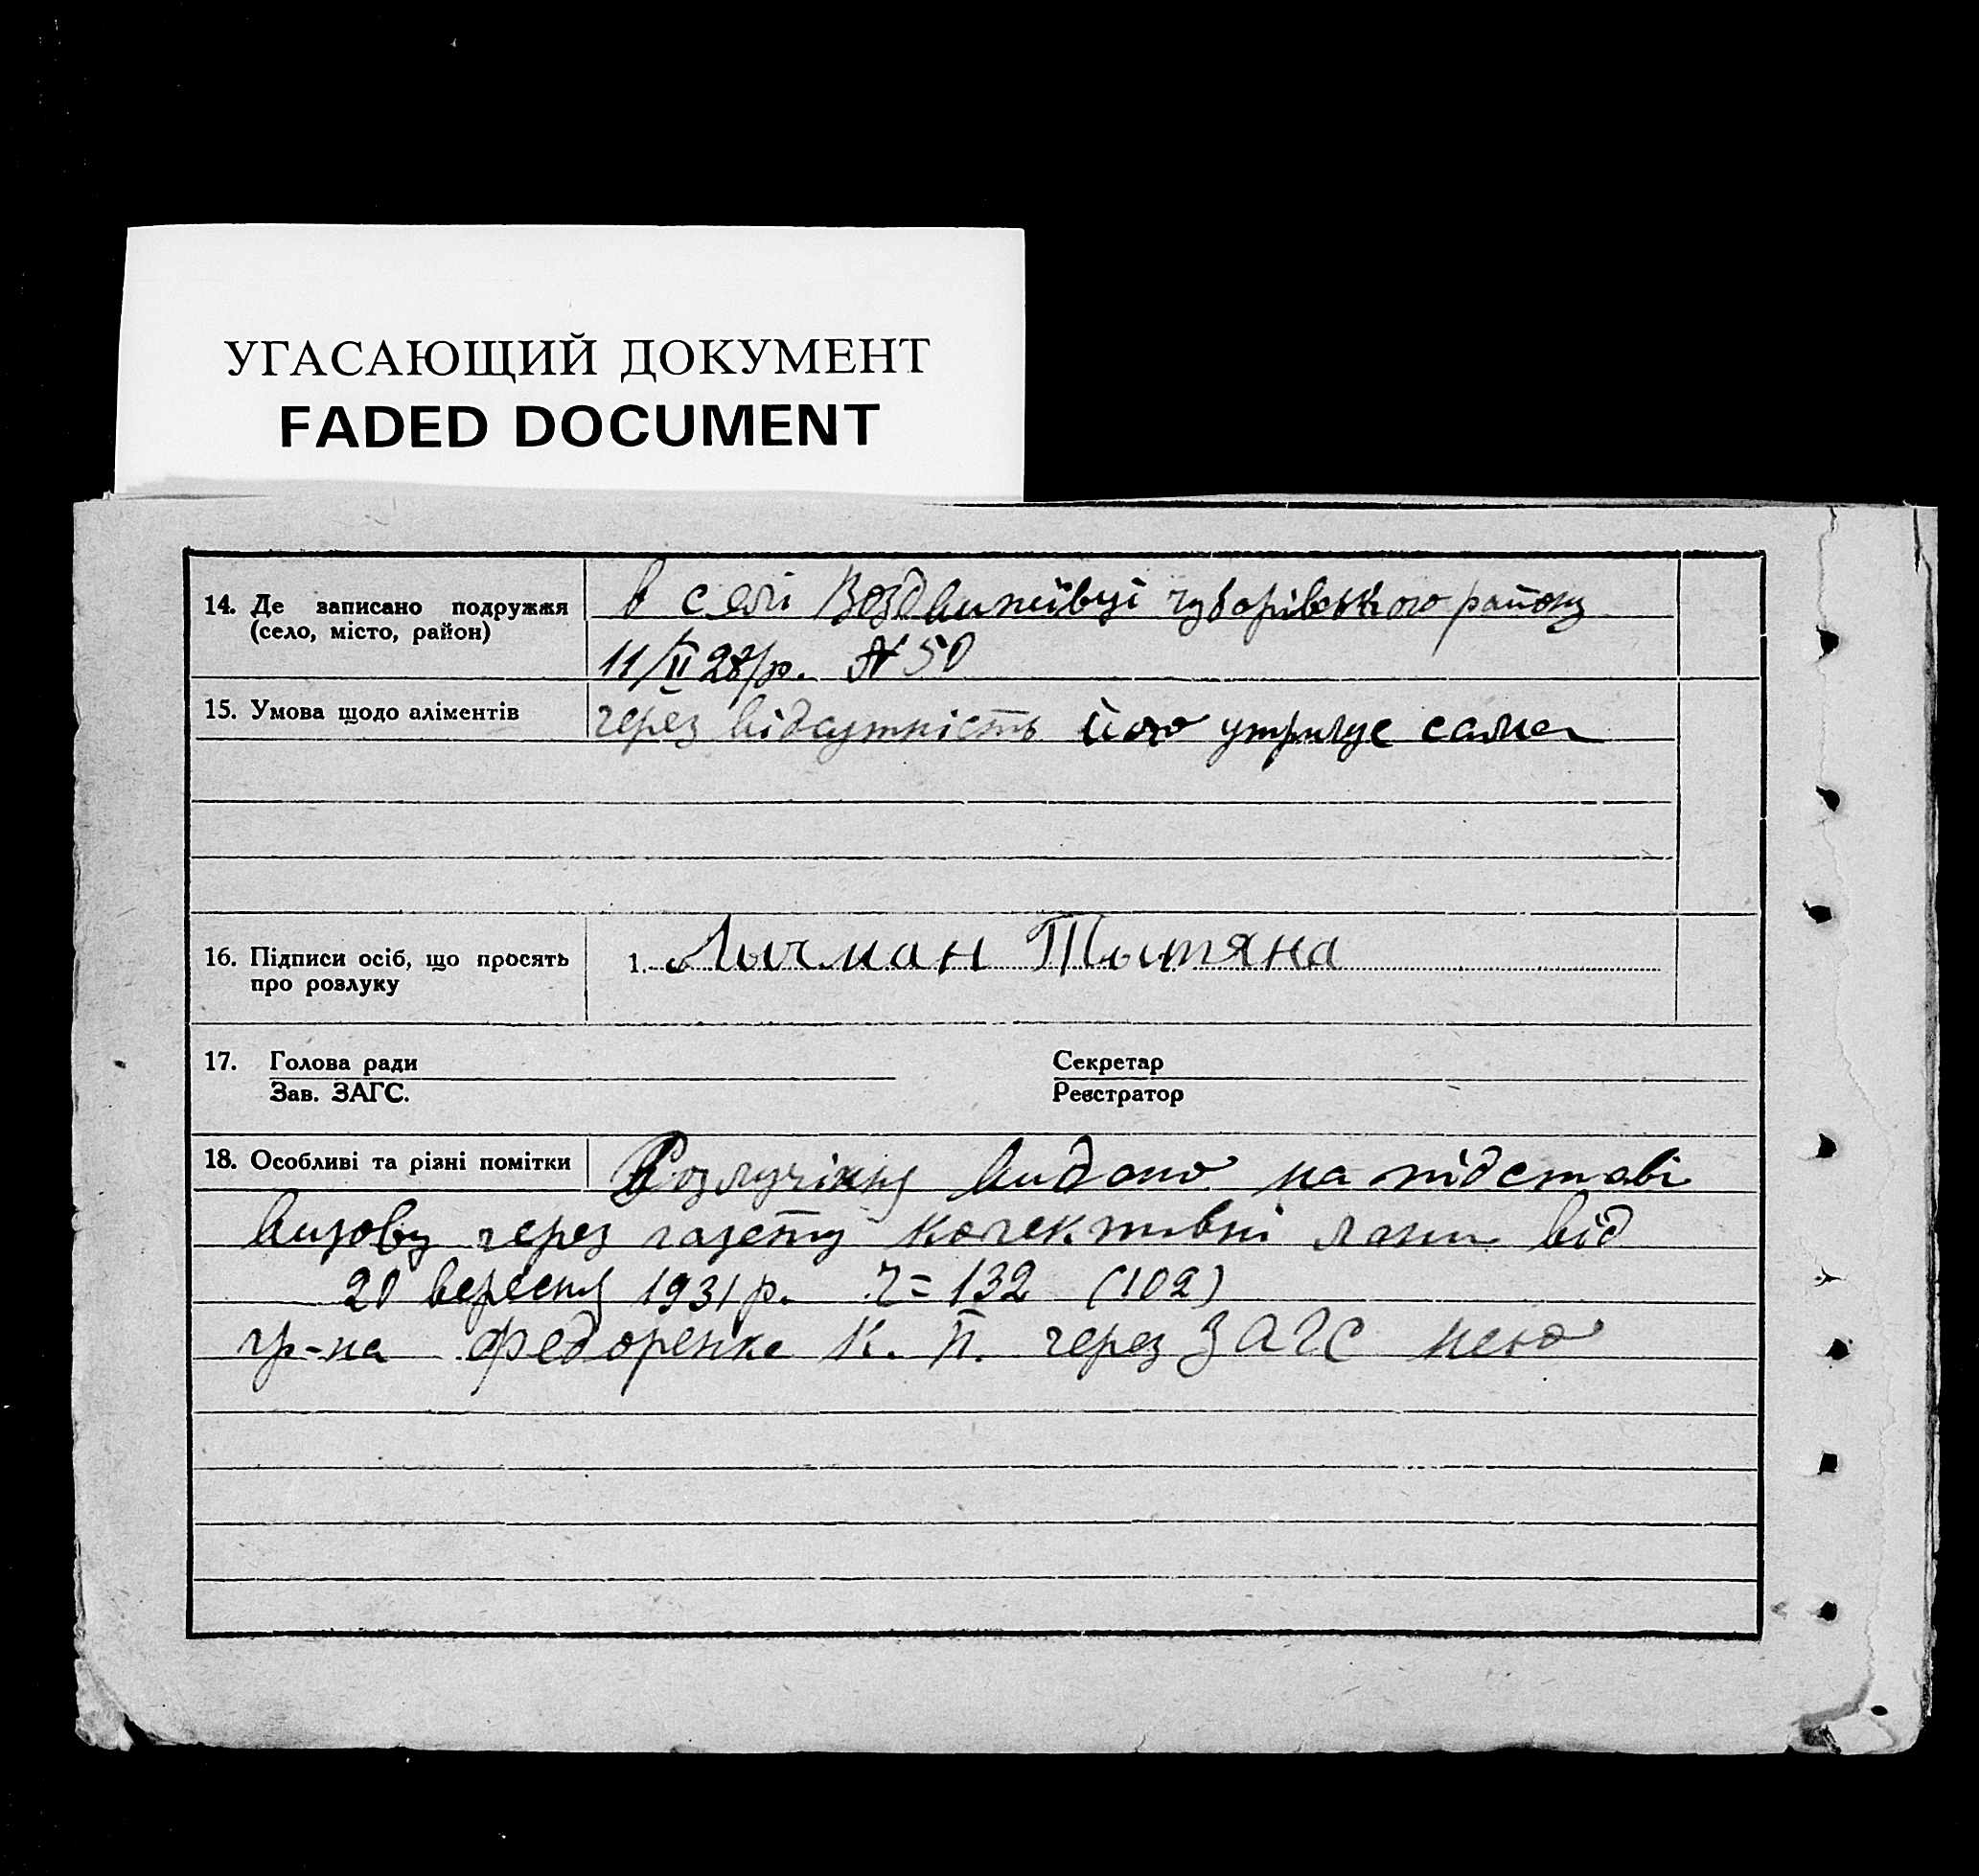 УГАСАЮЩИЙ ДОКУМЕНТ
FADED DOCUMENT
14. Де записано подружжя (село, місто, район)
в селі Воздвижівці чубарівського району
11/II 28/р. № 50
15. Умова щодо аліментів
через відсутність його утримує сама
16. Підписи осіб, що просять про розлуку
1. Лычман Тытяна
17. Голова ради
Зав. ЗАГС.
Секретар
Реєстратор
18. Особливі та різні помітки
Розлучіння видано на підставі
визову через газету колективні лани від
20 вересня 1931 р. ч = 132 (102)
гр-на Федоренка К. П. через ЗАГС нею